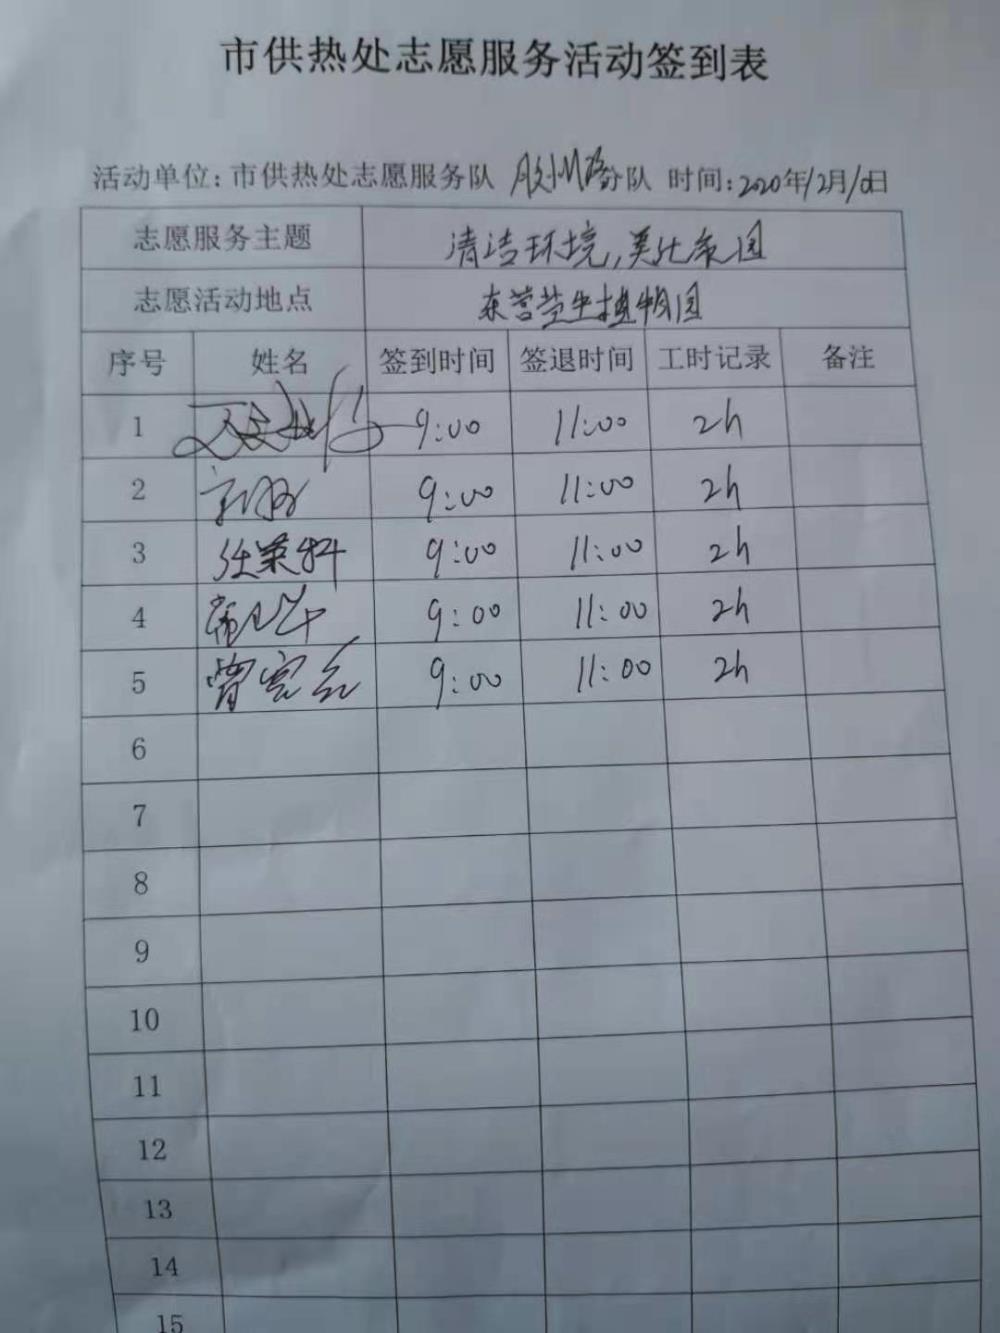 市供热处志愿服务活动签到表
活动单位:市供热处志愿服务队 胶州路分队 时间:2020年12月10日
志愿服务主题 清洁环境,美化家园
志愿活动地点 东营芝生植物园
序号 姓名 签到时间 签退时间 工时记录 备注
1 9:00 11:00 2h
2 9:00 11:00 2h
3 任荣科 9:00 11:00 2h
4 9:00 11:00 2h
5 9:00 11:00 2h
6
7
8
9
10
11
12
13
14
15